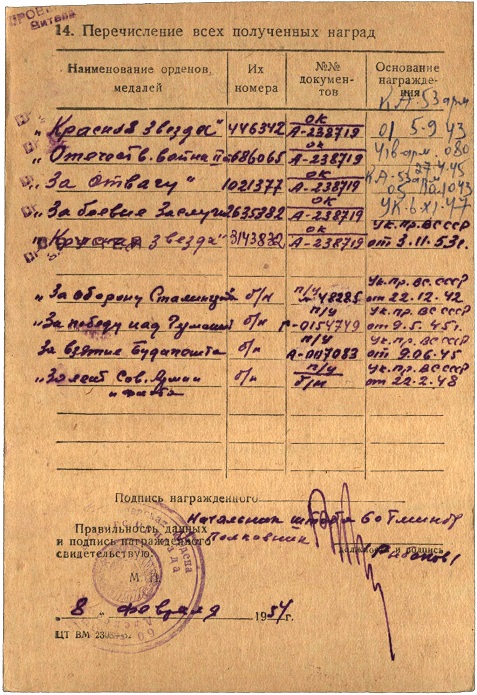 14. Перечисление всех полученных наград
Наименование орденов, медалей
Их номера
№№ документов
Основание награждения
„Красная звезда" 446342 ОК А-238719 КА-53 арм 01 5-9 43
„Отечеств. война 686065 ОК А-238719 080 27.4.45
„За Отвагу" 1021377 ОК А-238719 КА-53 арм 05
„За боевые Заслуги 2635382 ОК А-238719 Ук. 6.XI.47
„Красная звезда" 3143832 ОК А-238719 Ук.пр.ВС СССР от 3.11.53г.
„За оборону Сталинград б/н п/у 48285 Ук.пр.ВС СССР от 22.12.42
„За победу над Германией б/н п/у Г-0154749 Ук.пр.ВС СССР от 9.5.45г.
За взятие Будапешта б/н п/у А-007083 Ук.пр.ВСССР от 9.06.45
„30 лет Сов. Армии и флота б/н п/у б/н Ук.пр.ВСССР от 22.2.48
Подпись награжденного
Правильность данных и подпись награжденного свидетельствую:
Начальник штаба 60
Полковник
должность и подпись
М. П.
„ 8 " февраля 1954г.
ЦТ ВМ